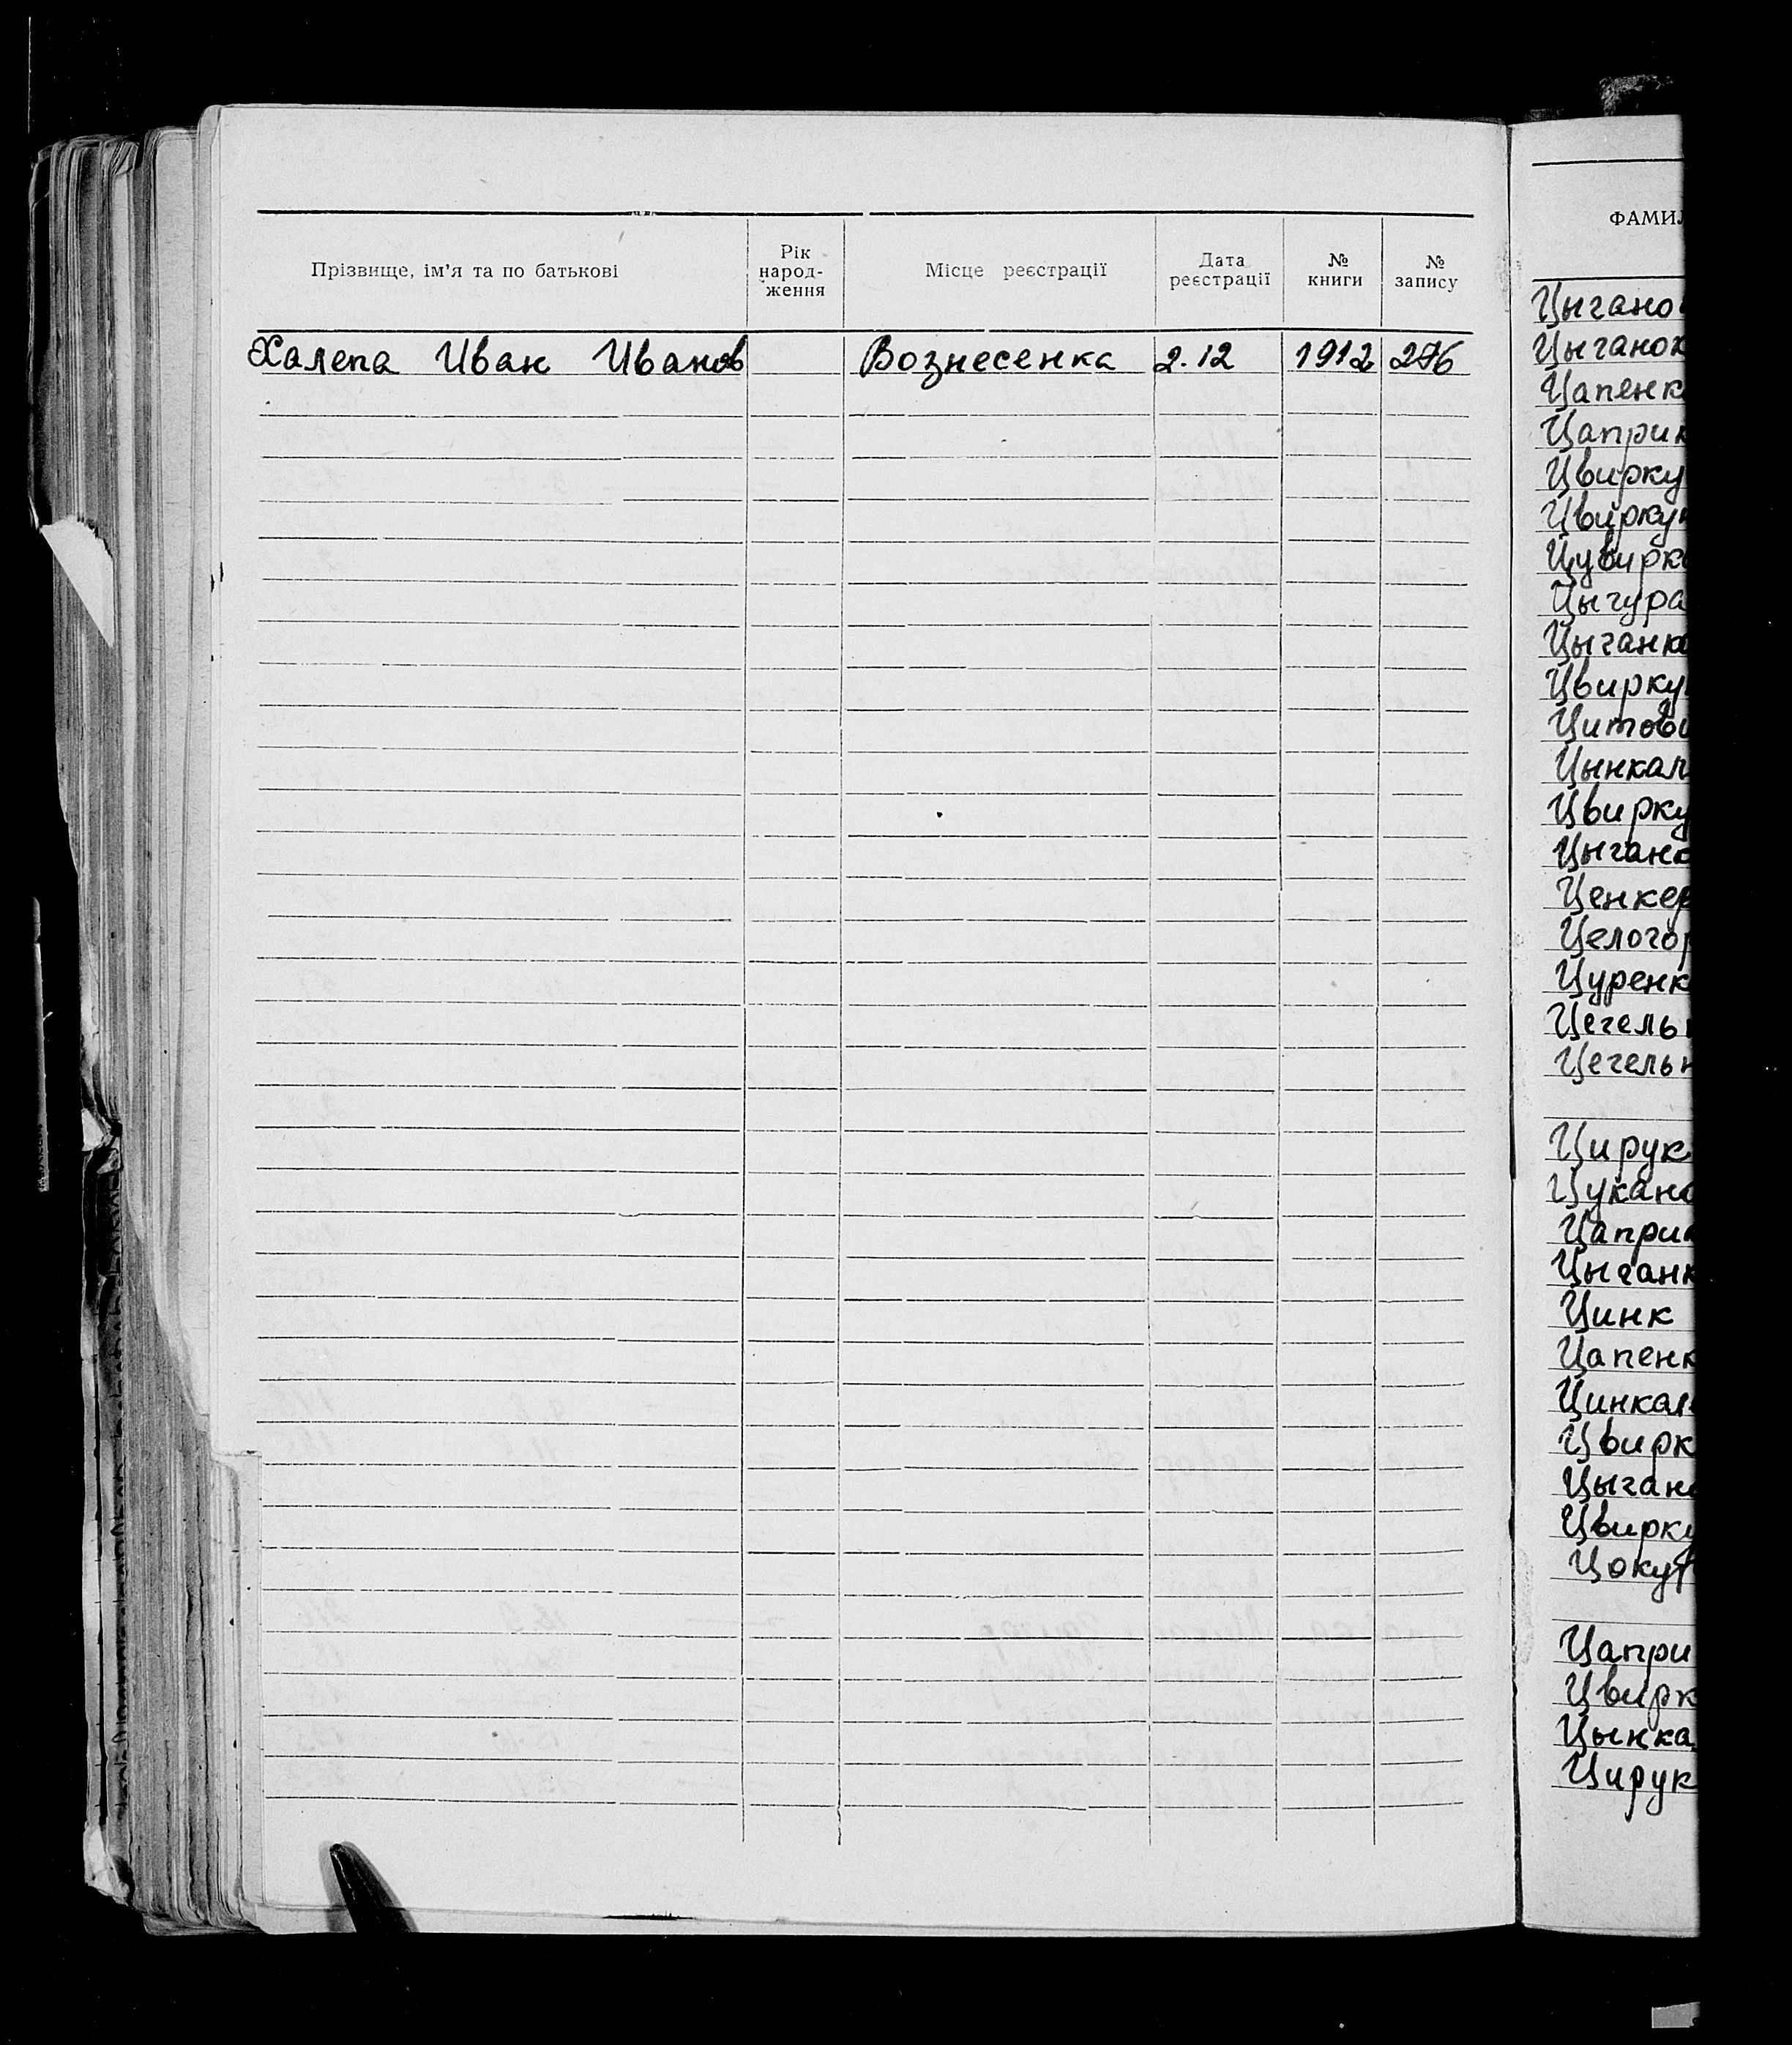 Прізвище, ім'я та по батькові
Рік
народ-
ження
Місце реєстрації
Дата
реєстрації
№
книги
№
запису
Халепа Иван Иванов Вознесенка 2.12 1912 276
ФАМИЛ
Цыгано
Цыганок
Цапенк
Цаприк
Цвирку
Цвиркун
Цувирк
Цыгура
Цыганко
Цвирку
Цитови
Цынкал
Цвирку
Цыгано
Ценкер
Целогор
Цуренк
Цегельн
Цегельн
Цирук
Цукано
Цаприк
Цыганк
Цинк
Цапенк
Цинкал
Цвирк
Цыгано
Цвирку
Цокур
Цапри
Цвирк
Цынка
Цирук